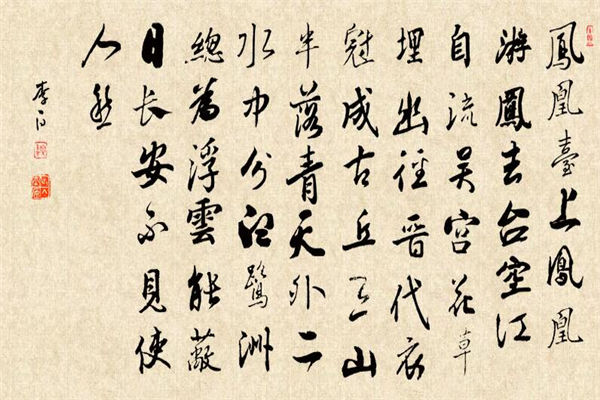 鳳凰臺上鳳凰
游鳳去台空江
自流吴宫花草
埋幽徑晉代衣
冠成古丘三山
半落青天外二
水中分白鷺洲
總為浮雲能蔽
日長安不見使
人愁
李白